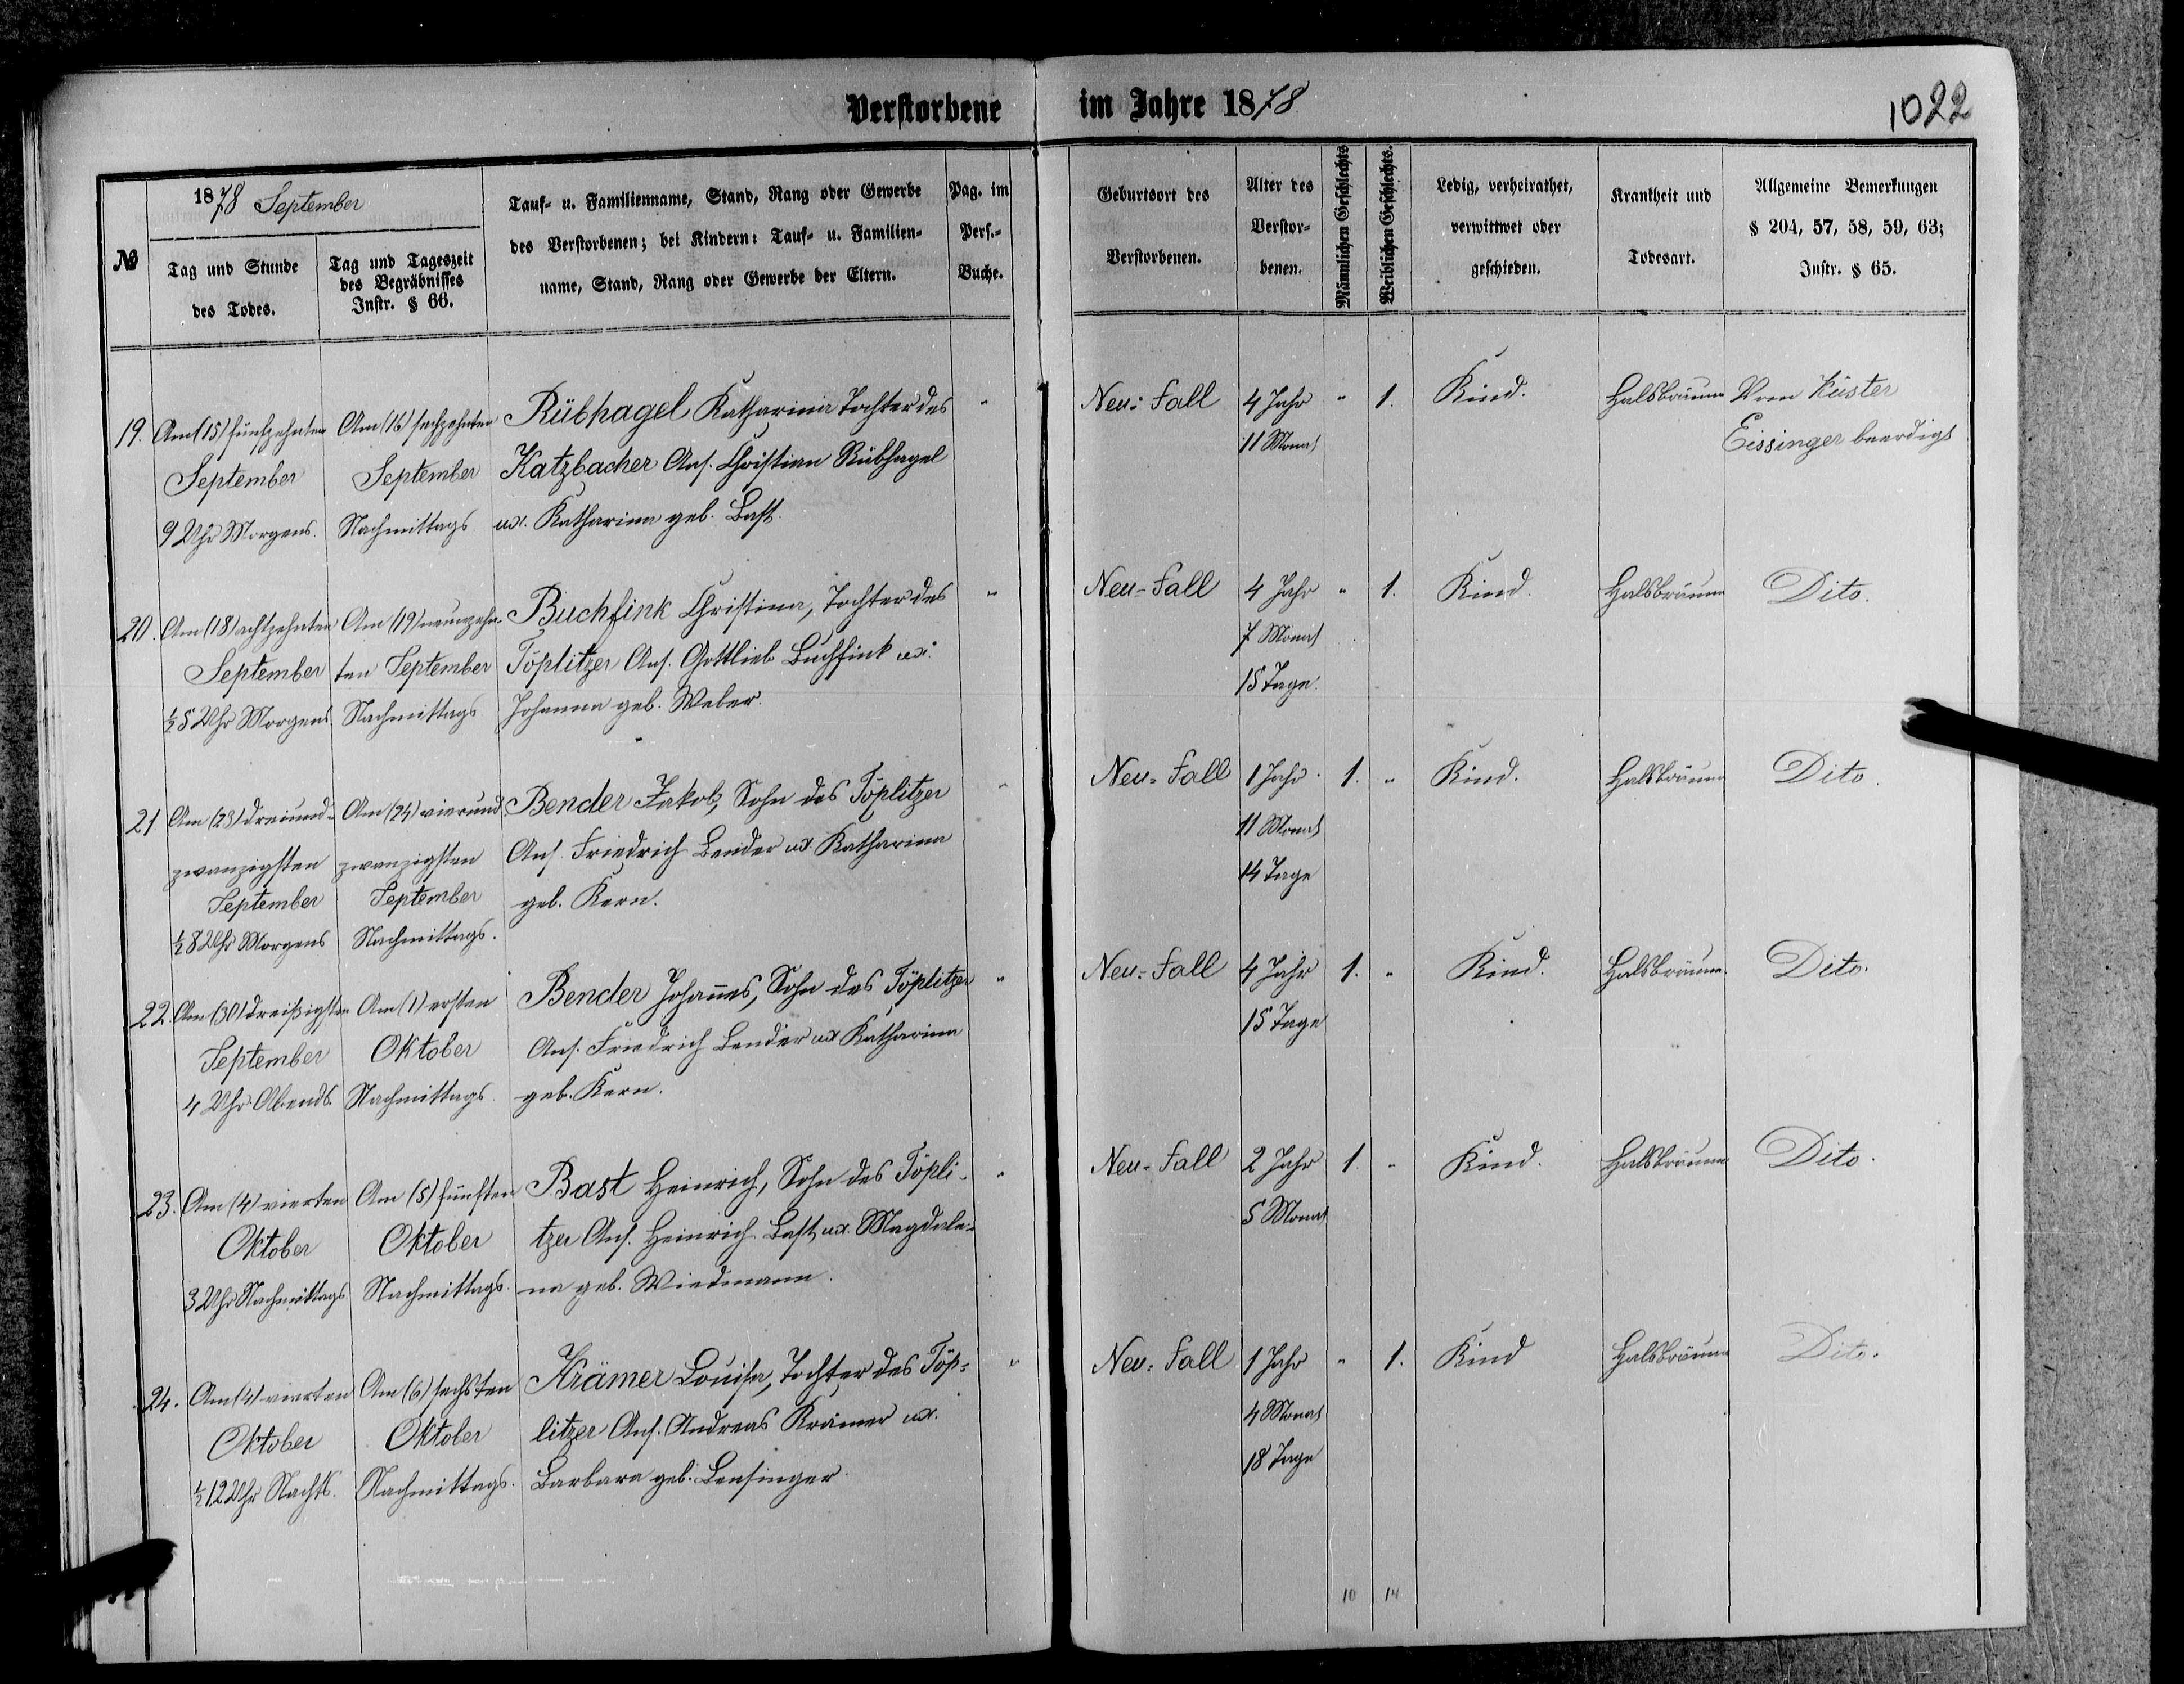 Verstorbene im Jahre 1878
1022
№
1878 September
Tag und Stunde
des Todes.
Tag und Tageszeit
des Begräbnisses
Instr. § 66.
Tauf- u. Familienname, Stand, Rang oder Gewerbe
des Verstorbenen; bei Kindern: Tauf- u. Familien-
name, Stand, Rang oder Gewerbe der Eltern.
Pag. im
Pers.-
Buche.
Geburtsort des
Verstorbenen.
Alter des
Verstor-
benen.
Männlichen Geschlechts
Weiblichen Geschlechts.
Ledig, verheirathet,
verwittwet oder
geschieden.
Krankheit und
Todesart.
Allgemeine Bemerkungen
§ 204, 57, 58, 59, 63;
Instr. § 65.
19.
Am (15) fünfzehnten
September
9 Uhr Morgens.
Am (16) sechzehnten
September
Nachmittags
Rübhagel Katharina Tochter des
Katzbacher Ans. Christian Rübhagel
ux. Katharina geb. Bast.
"
Neu-Fall
4 Jahr
11 Monat
"
1.
Kind.
Halsbräune
Vom Küster
Eissinger beerdigt
20.
Am (18) achtzehnten
September
½ 5 Uhr Morgens
Am (19) neunzehn-
ten September
Nachmittags
Buchfink Christina, Tochter des
Töplitzer Ans. Gottlieb Buchfink ux.
Johanna geb. Weber.
"
Neu-Fall
4 Jahr
7 Monat
15 Tage.
"
1.
Kind.
Halsbräune
Dito.
21
Am (23) dreiund-
zwanzigsten
September
½ 8 Uhr Morgens
Am (24) vierund-
zwanzigsten
September
Nachmittags.
Bender Jakob, Sohn des Töplitzer
Ans. Friedrich Bender ux Katharina
geb. Kern.
"
Neu-Fall
1 Jahr
11 Monat
14 Tage
1.
"
Kind.
Halsbräune
Dito.
22.
Am (30) dreißigsten
September
4 Uhr Abends.
Am (1) ersten
Oktober
Nachmittags.
Bender Johannes, Sohn des Töplitzer
Ans. Friedrich Bender ux Katharina
geb. Kern.
"
Neu-Fall
4 Jahr
15 Tage
1.
"
Kind.
Halsbräune.
Dito.
23.
Am (4) vierten
Oktober
3 Uhr Nachmittags
Am (5) fünften
Oktober
Nachmittags.
Bast Heinrich, Sohn des Töpli-
tzer Ans. Heinrich Bast ux. Magdale-
na geb. Wiedmann.
"
Neu-Fall
2 Jahr
5 Monat
1.
"
Kind.
Halsbräune
Dito.
24.
Am (4) vierten
Oktober
½ 12 Uhr Nachts.
Am (6) sechsten
Oktober
Nachmittags.
Krämer Louisa, Tochter des Töp-
litzer Ans. Andreas Krämer ux.
Barbara geb. Bensinger.
"
Neu-Fall
1 Jahr
4 Monat
18 Tage
"
1.
Kind
Halsbräune
Dito.
10
14